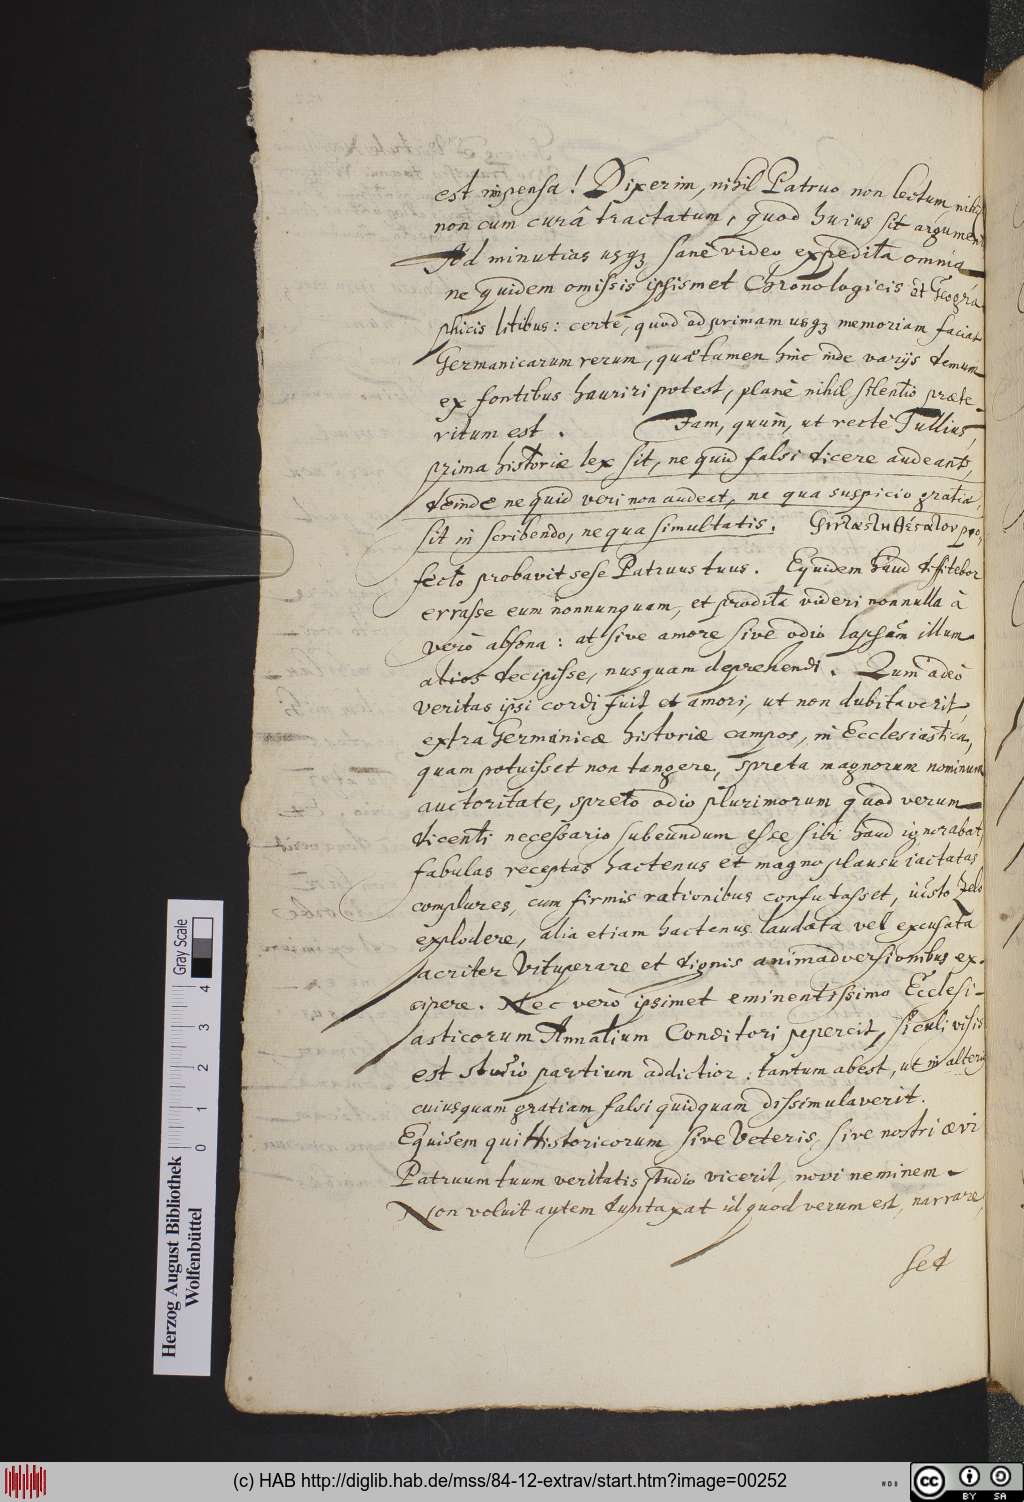 est impensa! Dixerim, nihil Patruo non lectum, nihil
non cum curâ tractatum, quod huius sit argumenti
Ad minutias usq₃ sanè video expedita omnia
ne quidem omissis ipsismet Chronologicis et Geogra
phicis litibus: certè, quod ad primam usq₃ memoriam faciat
Germanicarum rerum, quæ tamen hinc inde varijs demum
ex fontibus hauriri potest, planè nihil silentio præte-
ritum est. Jam, quum, ut rectè Tullius,
prima historiæ lex sit, ne quid falsi dicere audeant,
deinde ne quid veri non audeat, ne qua suspicio gratiæ
sit in scribendo, ne qua simultatis. pro,
fecto probavit sese Patruus tuus. Equidem haud diffitebor
errasse eum nonnunquam, et prodita videri nonnulla à
vero absona: at sive amore sive odio lapsum illum
alios decipisse, nusquam deprehendi. Qum adeò
veritas ipsi cordi fuit et amori, ut non dubitaverit,
extra Germanicæ historiæ campos, in Ecclesiastica,
quam potuisset non tangere, spreta magnorum nominum
auctoritate, spreto odio plurimorum quod verum
dicenti necessario subeundum esse sibi haud ignorabat,
fabulas receptas hactenus et magno plausu iactatas
complures, cum firmis rationibus confutasset, iusto zelo
explodere, alia etiam hactenus laudata vel excusata
acriter vituperare et dignis animadversionibus ex-
cipere. Nec verò ipsimet eminentissimo Ecclesi-
asticorum Annalium Conditori pepercit, sicubi visus
est studio partium addictior: tantum abest, ut in alterius
cuiusquam gratiam falsi quidquam dissimulaverit.
Equidem qui Historicorum sive Veteris, sive nostri ævi
Patruum tuum veritatis studio vicerit, novi neminem
Non voluit autem duntaxat id quod verum est, narrare,
sed
Herzog August Bibliothek
Wolfenbüttel
0 1 2 3 4
Gray Scale
(c) HAB http://diglib.hab.de/mss/84-12-extrav/start.htm?image=00252
cc BY SA